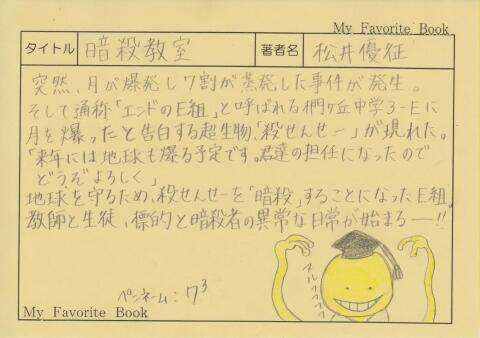 My Favorite Book
タイトル 暗殺教室 著者名 松井優征
突然、月が爆発し7割が蒸発した事件が発生。
そして通称「エンドのE組」と呼ばれる椚ヶ丘中学3-Eに
月を爆ったと告白する超生物、「殺せんせー」が現れた。
「来年には地球も爆る予定です。君達の担任になったので
どうぞよろしく」
地球を守るため、殺せんせーを「暗殺」することになったE組。
教師と生徒、標的と暗殺者の異常な日常が始まる――!!
ヌルフフフ
ペンネーム:7³
My Favorite Book